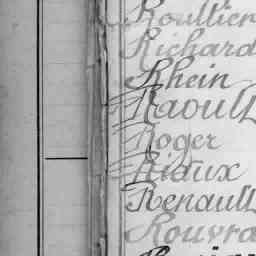 Roullier
Richard
Rhein
Raoult
Roger
Riaux
Renault